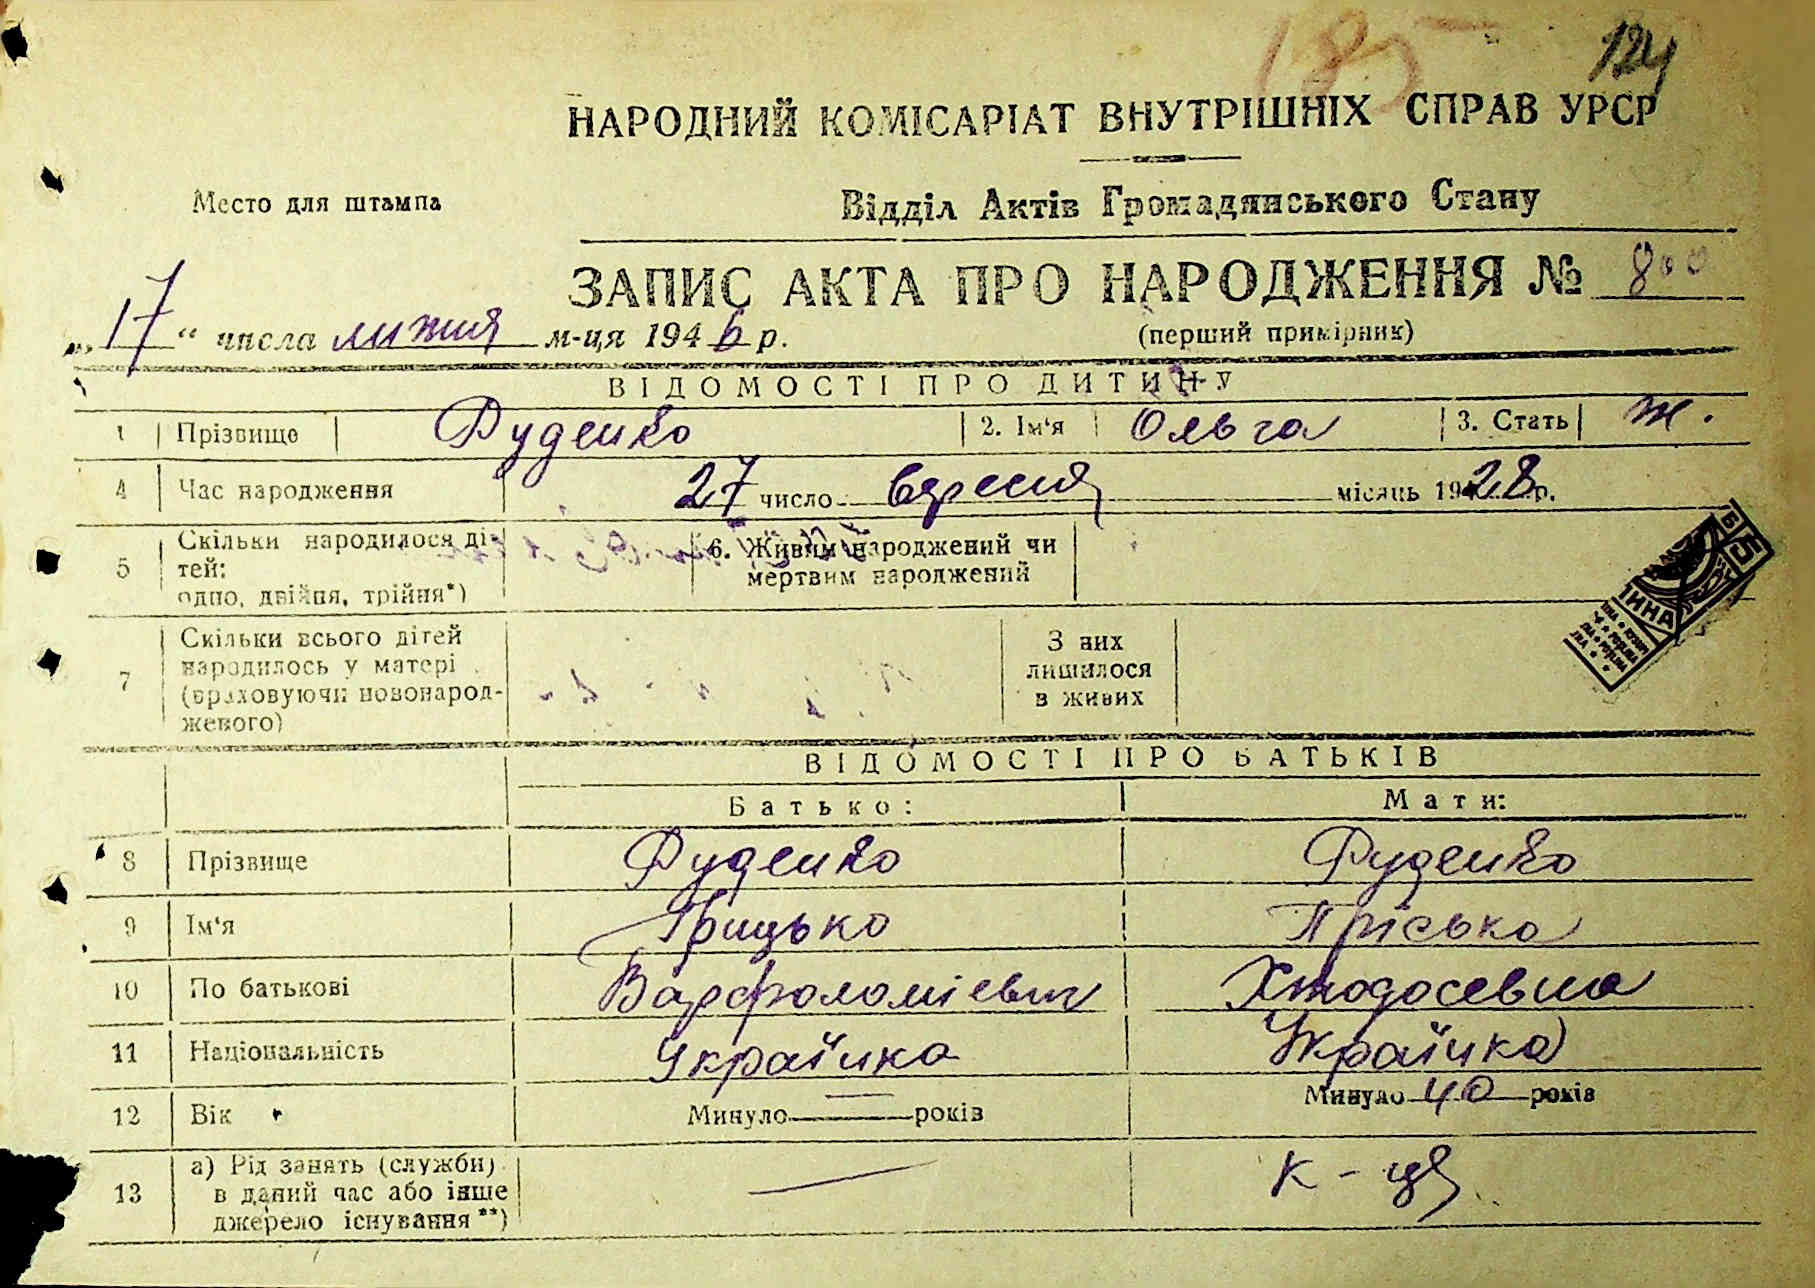 185
124
НАРОДНИЙ КОМІСАРІАТ ВНУТРІШНІХ СПРАВ УРСР
Место для штампа
Відділ Актів Громадянського Стану
ЗАПИС АКТА ПРО НАРОДЖЕННЯ № 800
„17“ числа липня м-ця 1946 р.
(перший примірник)
ВІДОМОСТІ ПРО ДИТИНУ
1 Прізвище Руденко 2. Ім'я Ольга 3. Стать ж.
4 Час народження 27 число вересня місяць 1928 р.
5 Скільки народилося ді-
тей:
одно, двійня, трійня*)
6. Живим народжений чи
мертвим народжений
7 Скільки всього дітей
народилось у матері
(враховуючи новонарод-
женого)
З них
лишилося
в живих
ВІДОМОСТІ ПРО БАТЬКІВ
Батько: Мати:
8 Прізвище Руденко Руденко
9 Ім'я Грицько Пріська
10 По батькові Варфоломієвич Хтодосевна
11 Національність Українка Українка
12 Вік Минуло — років Минуло 40 років
13 а) Рід занять (служби)
в даний час або інше
джерело існування**)
— К-ця